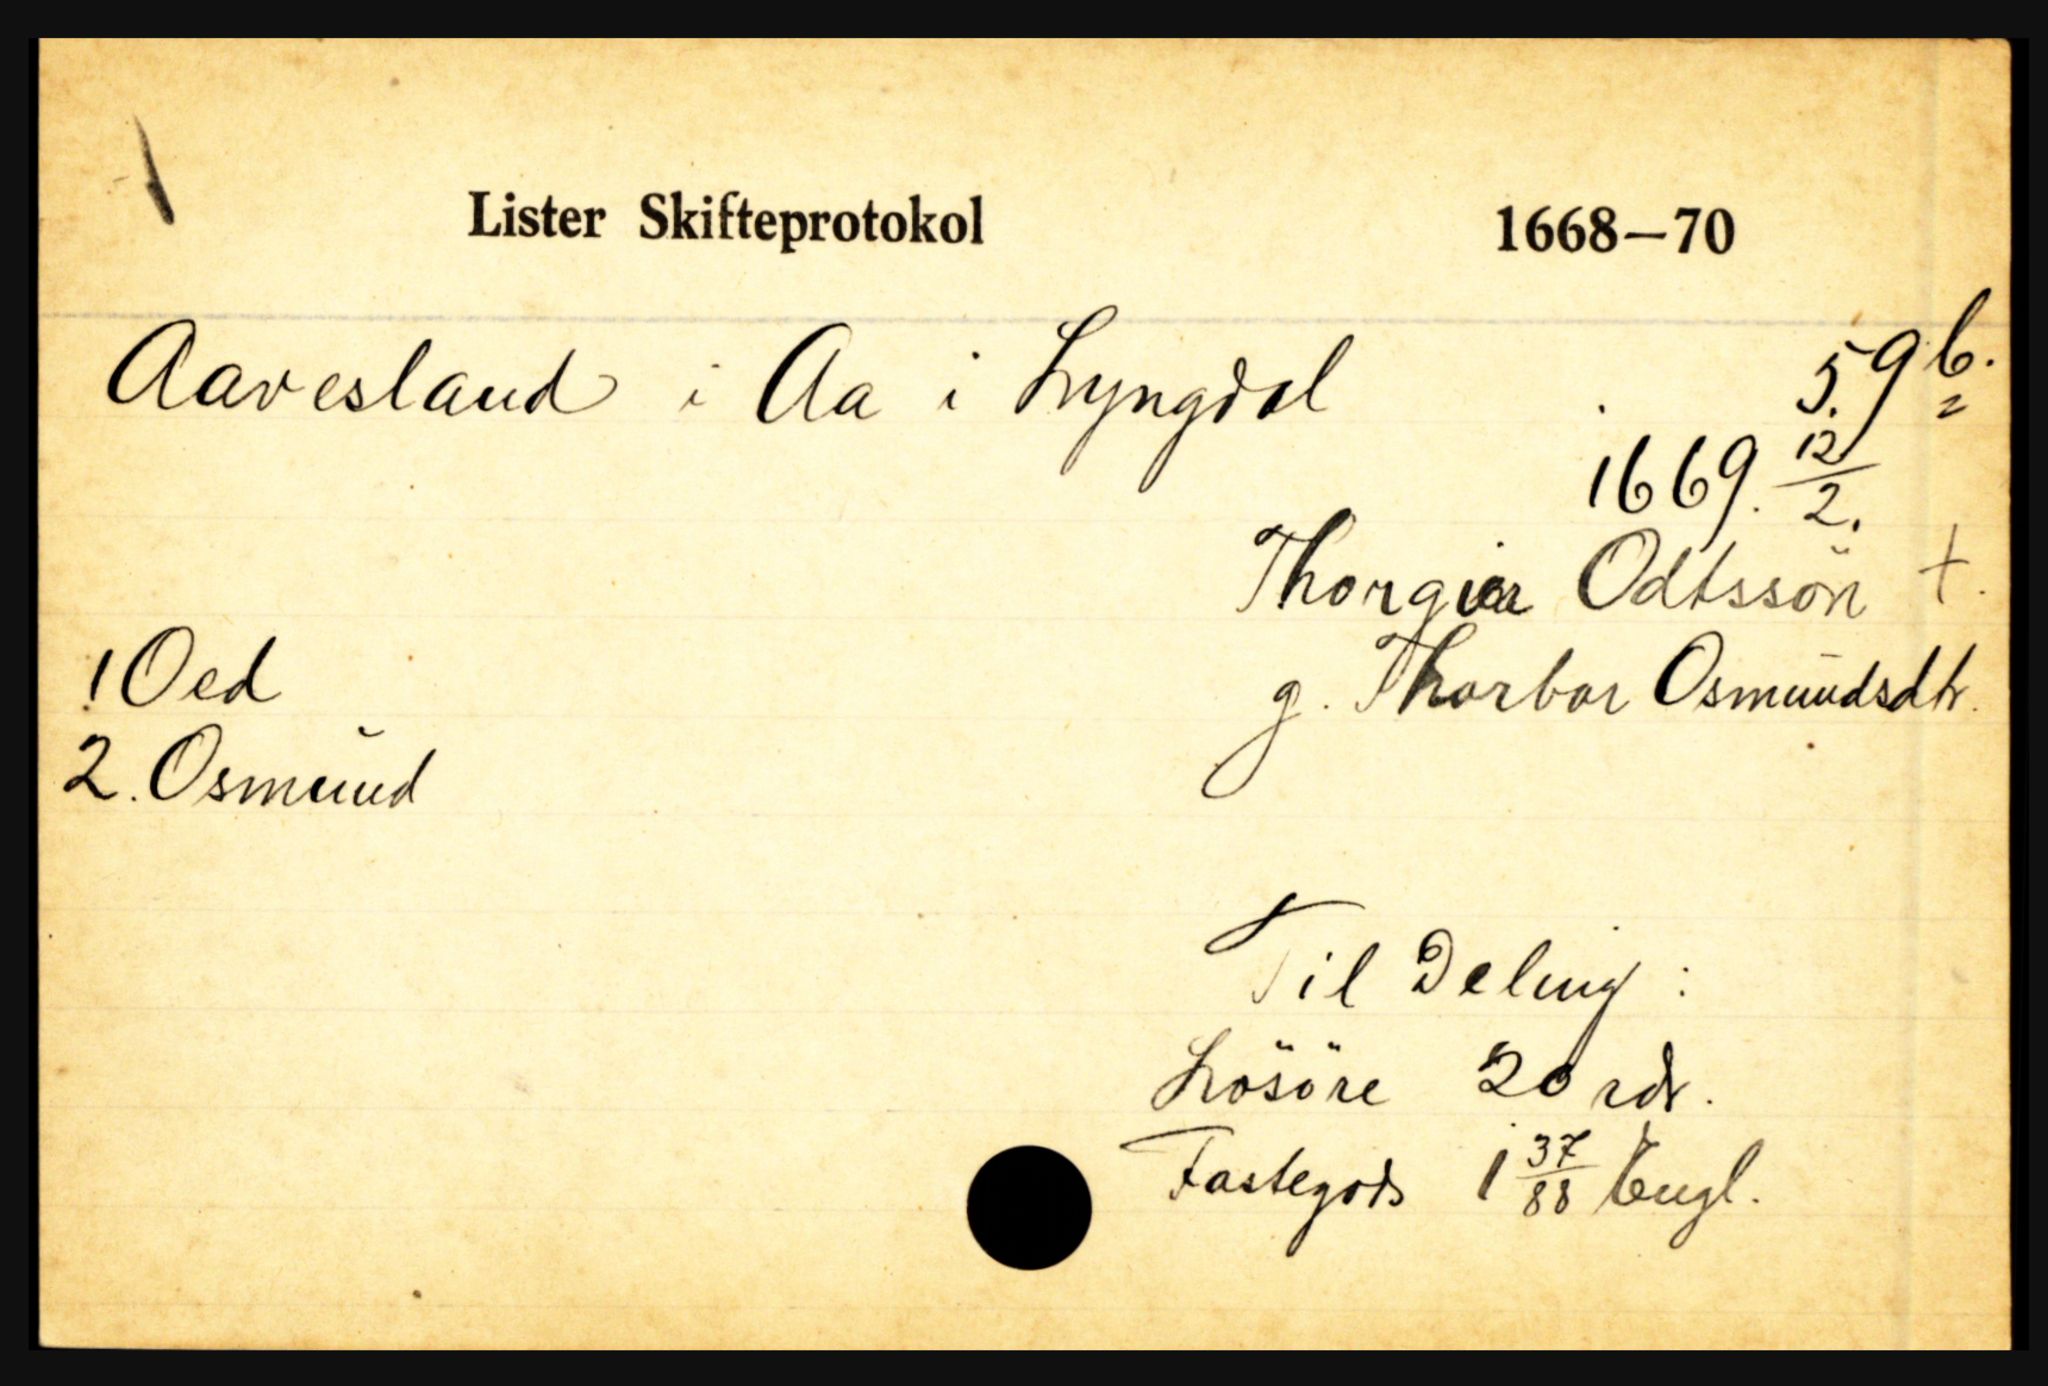 Lister Skifteprotokol 1668–70
Aavesland i Aa i Lyngdal . 59 b.
1669. 12/2.
Odtssön †.
1 Oed g. Thorbor Osmundsdtr.
2. Osmund
Til Deling :
Lösöre 20 rdr.
Fastegods 1 37/88 Engl.